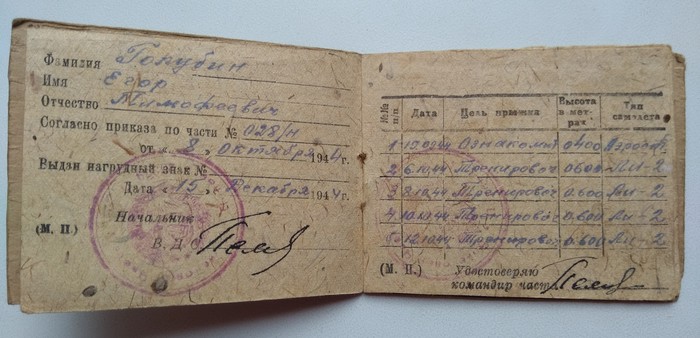 Фамилия Голубин
Имя Егор
Отчество Тимофеевич
Согласно приказа по части № 028/н
от „ 2 „ октября 1944 г.
Выдан нагрудный знак №
Дата „ 15 „ декабря 1944 г.
Начальник
(М. П.) В.Д.С.
№№ п/п Дата Цель прыжка Высота в метрах Тип самолета
1 Ознакомит 0400
2 6.10.44 Тренировоч 0600 Ли-2
3 8.10.44 Тренировоч 0.600 Ли-2
4 10.10.44 Тренировоч 0.600 Ли-2
5 12.10.44 Тренировоч 0.600 Ли-2
(М. П.) Удостоверяю
командир част